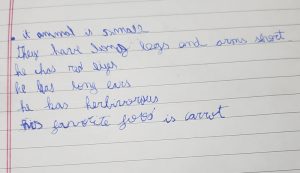 • it ammal is small
they have long legs and arms short
he has red eyes
he has long ears
he has herbivorous
his favorite food is carrot